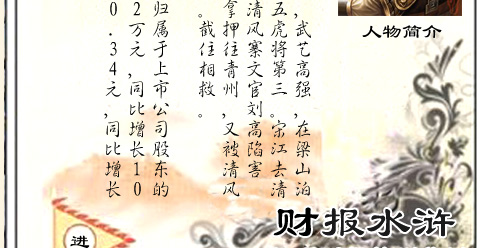 人物简介
，武艺高强，在梁山泊
五虎将第三。宋江去清
清风寨文官刘高陷害
拿押往青州，又被清风
。截住相救。
归属于上市公司股东的
2万元，同比增长10
0.34元，同比增长
财报水浒
进